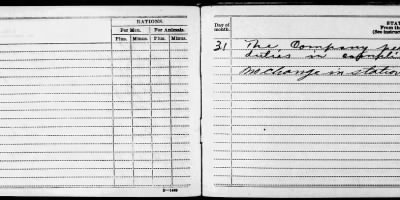 RATIONS.
For Men. For Animals.
Plus. Minus. Plus. Minus.
3—1486
Day of month.
STAT
From the
(See instruc
31 The Company pe
duties in
No Change in station